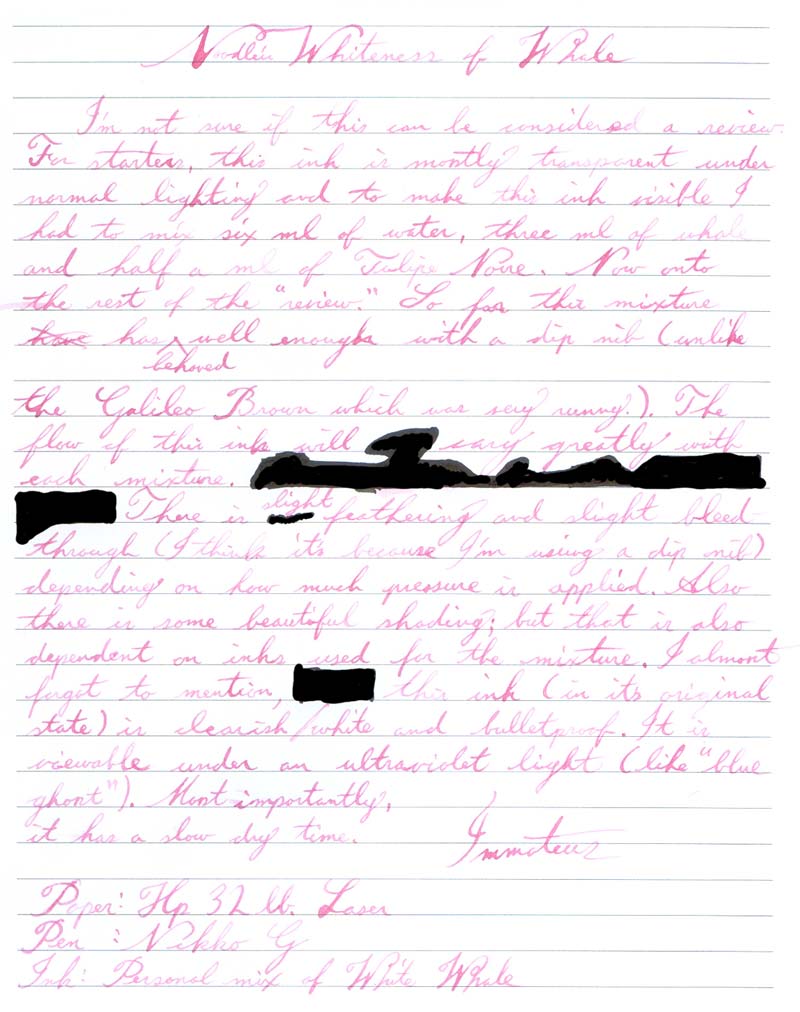 Noodler's Whiteness of Whale
I'm not sure if this can be considered a review.
For starters, this ink is mostly transparent under
normal lighting and to make this ink visible I
had to mix six ml of water, three ml of whale
and half a ml of Tulipe Noire. Now onto
the rest of the "review." So far this mixture
have has behaved well enough with a dip nib (unlike
the Galileo Brown which was very runny.). The
flow of this ink will vary greatly with
each mixture.
There is slight feathering and slight bleed-
through (I think it's because I'm using a dip nib)
depending on how much pressure is applied. Also
there is some beautiful shading; but that is also
dependent on inks used for the mixture. I almost
forgot to mention, this ink (in its original
state) is clearish/white and bulletproof. It is
viewable under an ultraviolet light (like "blue
ghost"). Most importantly,
it has a slow dry time.
Paper: Hp 32 lb. Laser
Pen : Nikko G
Ink: Personal mix of White Whale